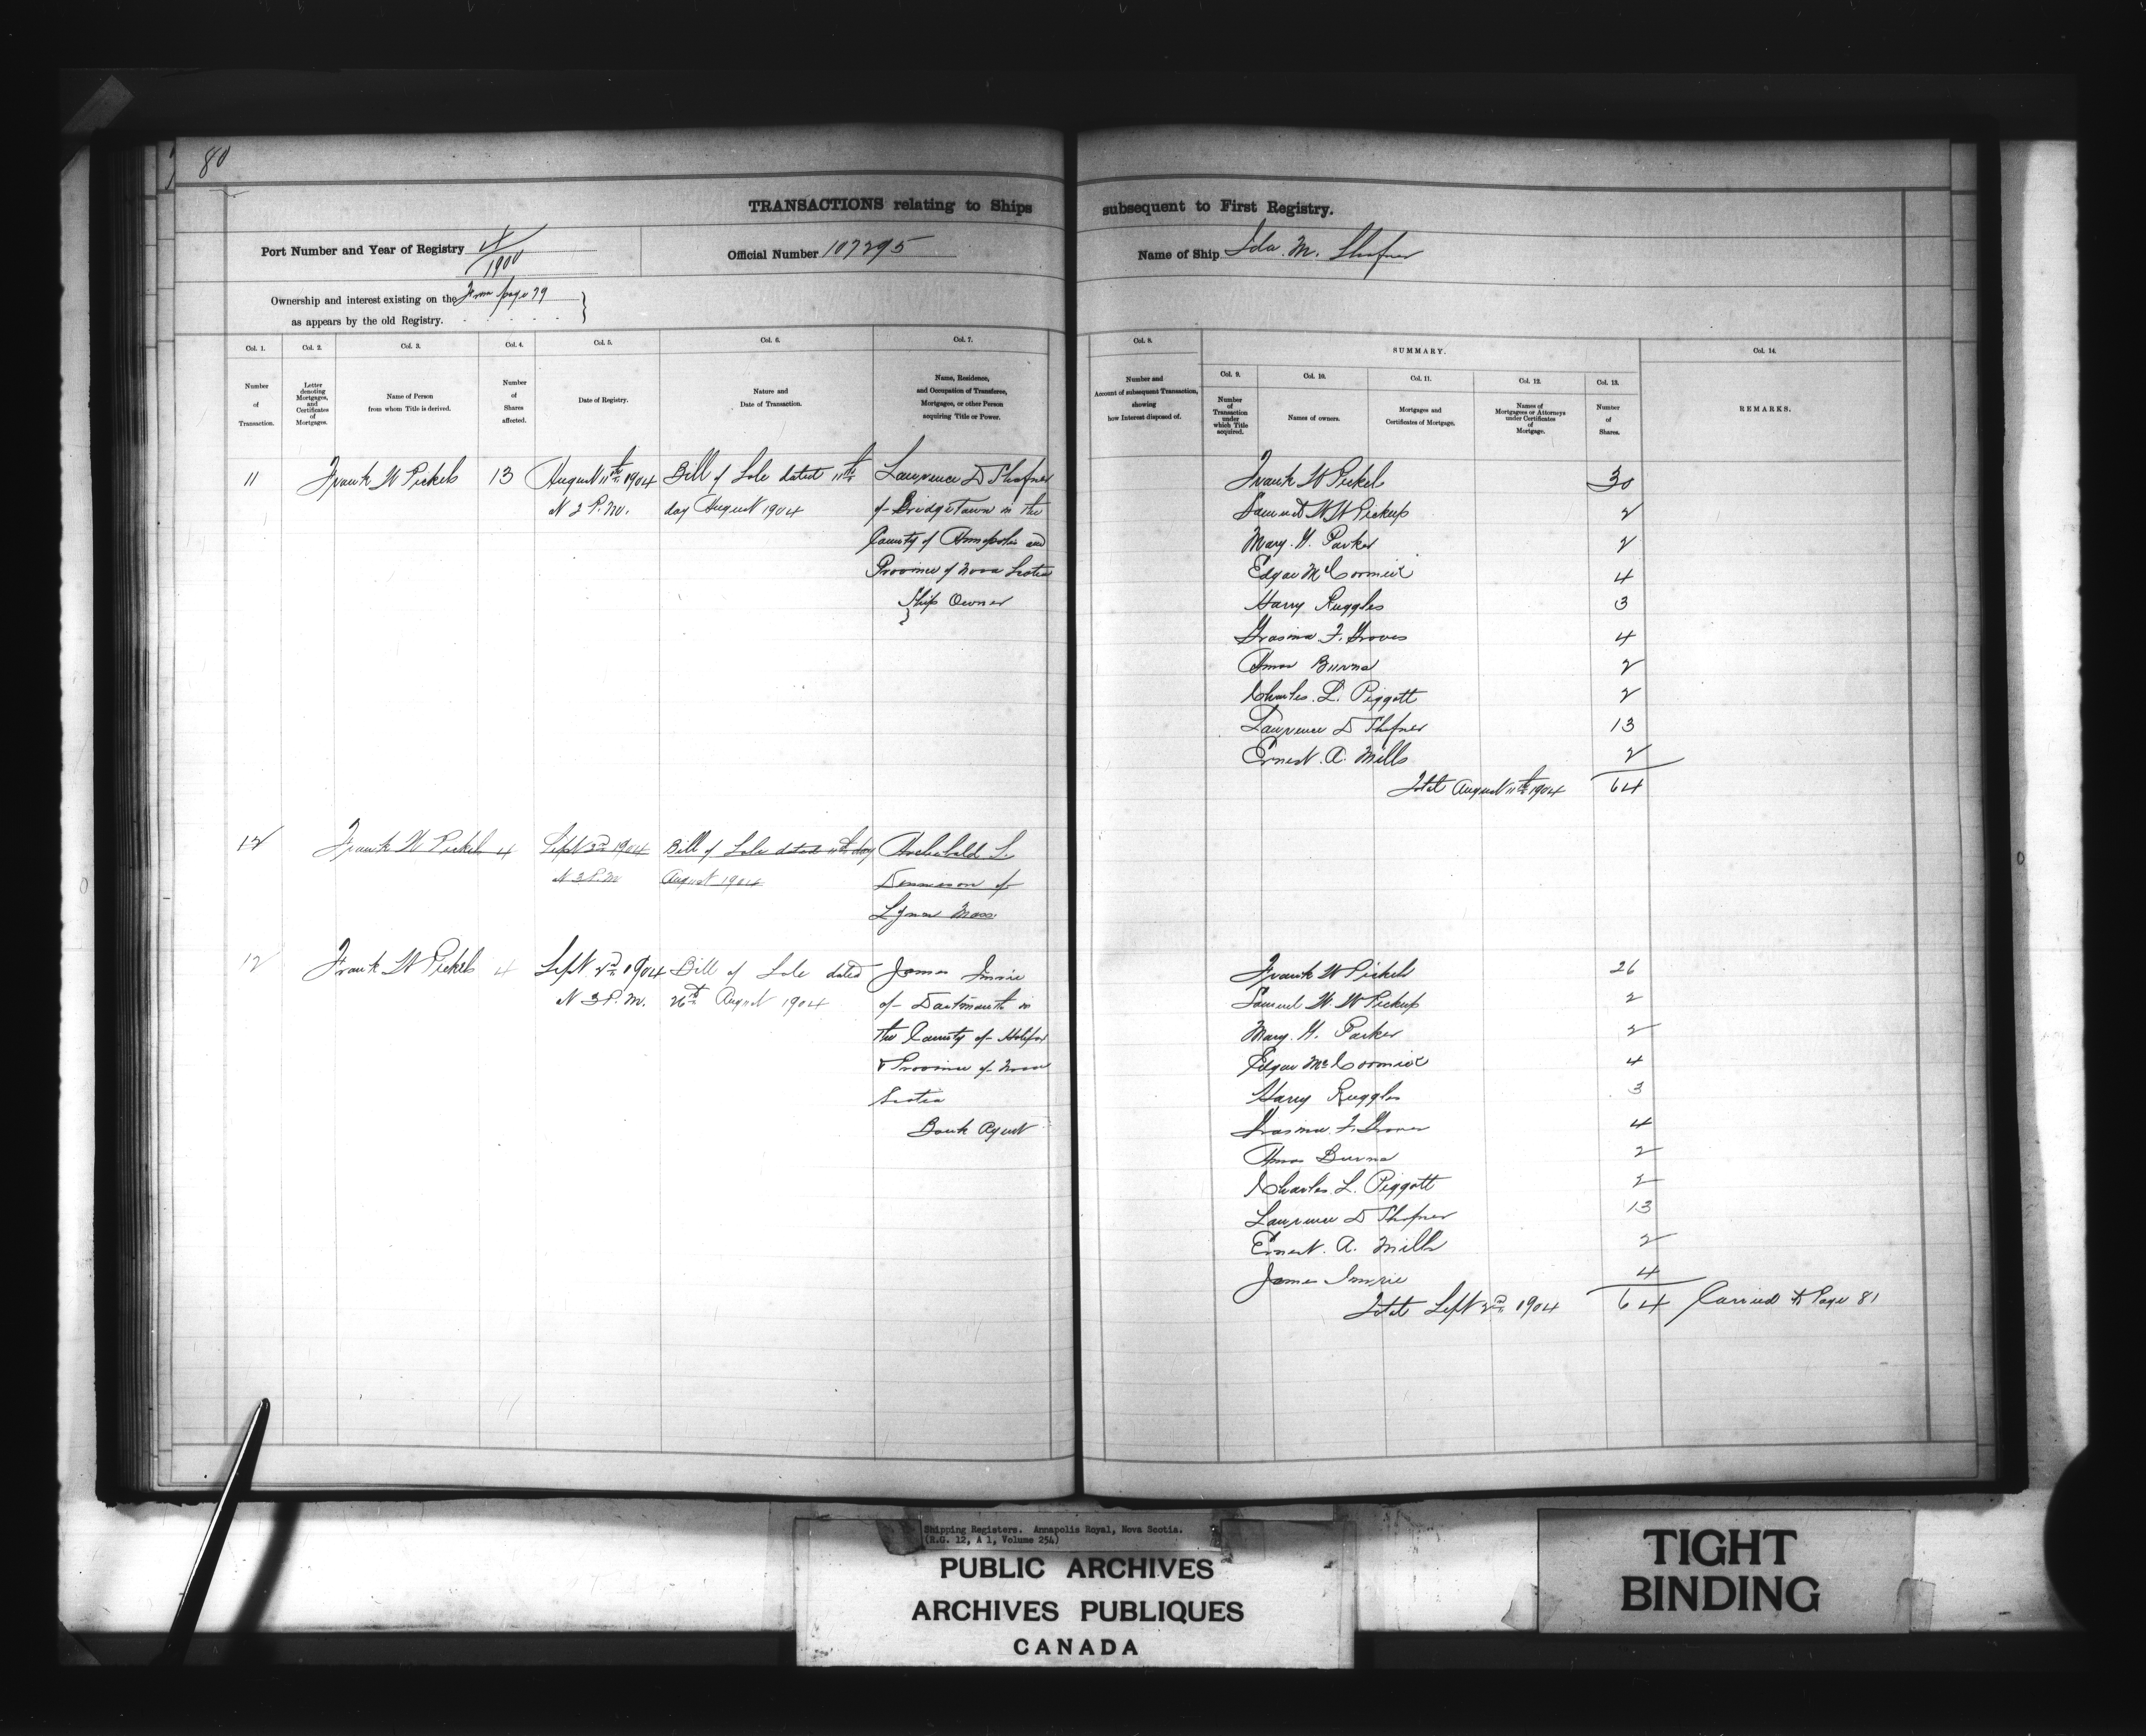 80
TRANSACTIONS relating to Ships subsequent to First Registry.
Port Number and Year of Registry 4/1900
Official Number 107295
Name of Ship Ida M. Shafner
Ownership and interest existing on the From page 79
as appears by the old Registry.
Col. 1.
Number
of
Transaction.
Col. 2.
Letter
denoting
Mortgages,
and
Certificates
of
Mortgages.
Col. 3.
Name of Person
from whom Title is derived.
Col. 4.
Number
of
Shares
affected.
Col. 5.
Date of Registry.
Col. 6.
Nature and
Date of Transaction.
Col. 7.
Name, Residence,
and Occupation of Transferee,
Mortgagee, or other Person
acquiring Title or Power.
Col. 8.
Number and
Account of subsequent Transaction,
showing
how Interest disposed of.
SUMMARY.
Col. 9.
Number
of
Transaction
under
which Title
acquired.
Col. 10.
Names of owners.
Col. 11.
Mortgages and
Certificates of Mortgage.
Col. 12.
Names of
Mortgagees or Attorneys
under Certificates
of
Mortgage.
Col. 13.
Number
of
Shares.
Col. 14.
REMARKS.
11 Frank W Pickels 13 August 11th 1904 Bill of Sale dated 11th Lawrence D Shafner
at 2 P.M. day August 1904 of Bridgetown in the
County of Annapolis and
Province of Nova Scotia
Ship Owner
Frank W Pickels 30
Samuel W W Pickup 2
Mary H. Parker 2
Edgar McCormick 4
Harry Ruggles 3
F. Groves 4
Amos Burns 2
Charles L. Piggott 2
Lawrence D Shafner 13
Ernest A. Mills 2
Total August 11th 1904 64
12 Frank W Pickels 4 Sept 1904 Bill of Sale dated 11th day Archibald L.
at 3 P.M August 1904 Dennison of
Mass
12 Frank W Pickels 4 Sept 2nd 1904 Bill of Sale dated James Imrie
at 3 P.M. 26th August 1904 of Dartmouth in
the County of Halifax
& Province of Nova
Scotia
Bank Agent
Frank W Pickels 26
Samuel W. W Pickup 2
Mary H. Parker 2
Edgar McCormick 4
Harry Ruggles 3
F. Groves 4
Amos Burns 2
Charles L. Piggott 2
Lawrence D Shafner 13
Ernest A. Mills 2
James Imrie 4
Total Sept 2nd 1904 64 Carried to Page 81
Shipping Registers. Annapolis Royal, Nova Scotia.
(R.G. 12, A 1, Volume 254)
PUBLIC ARCHIVES
ARCHIVES PUBLIQUES
CANADA
TIGHT
BINDING